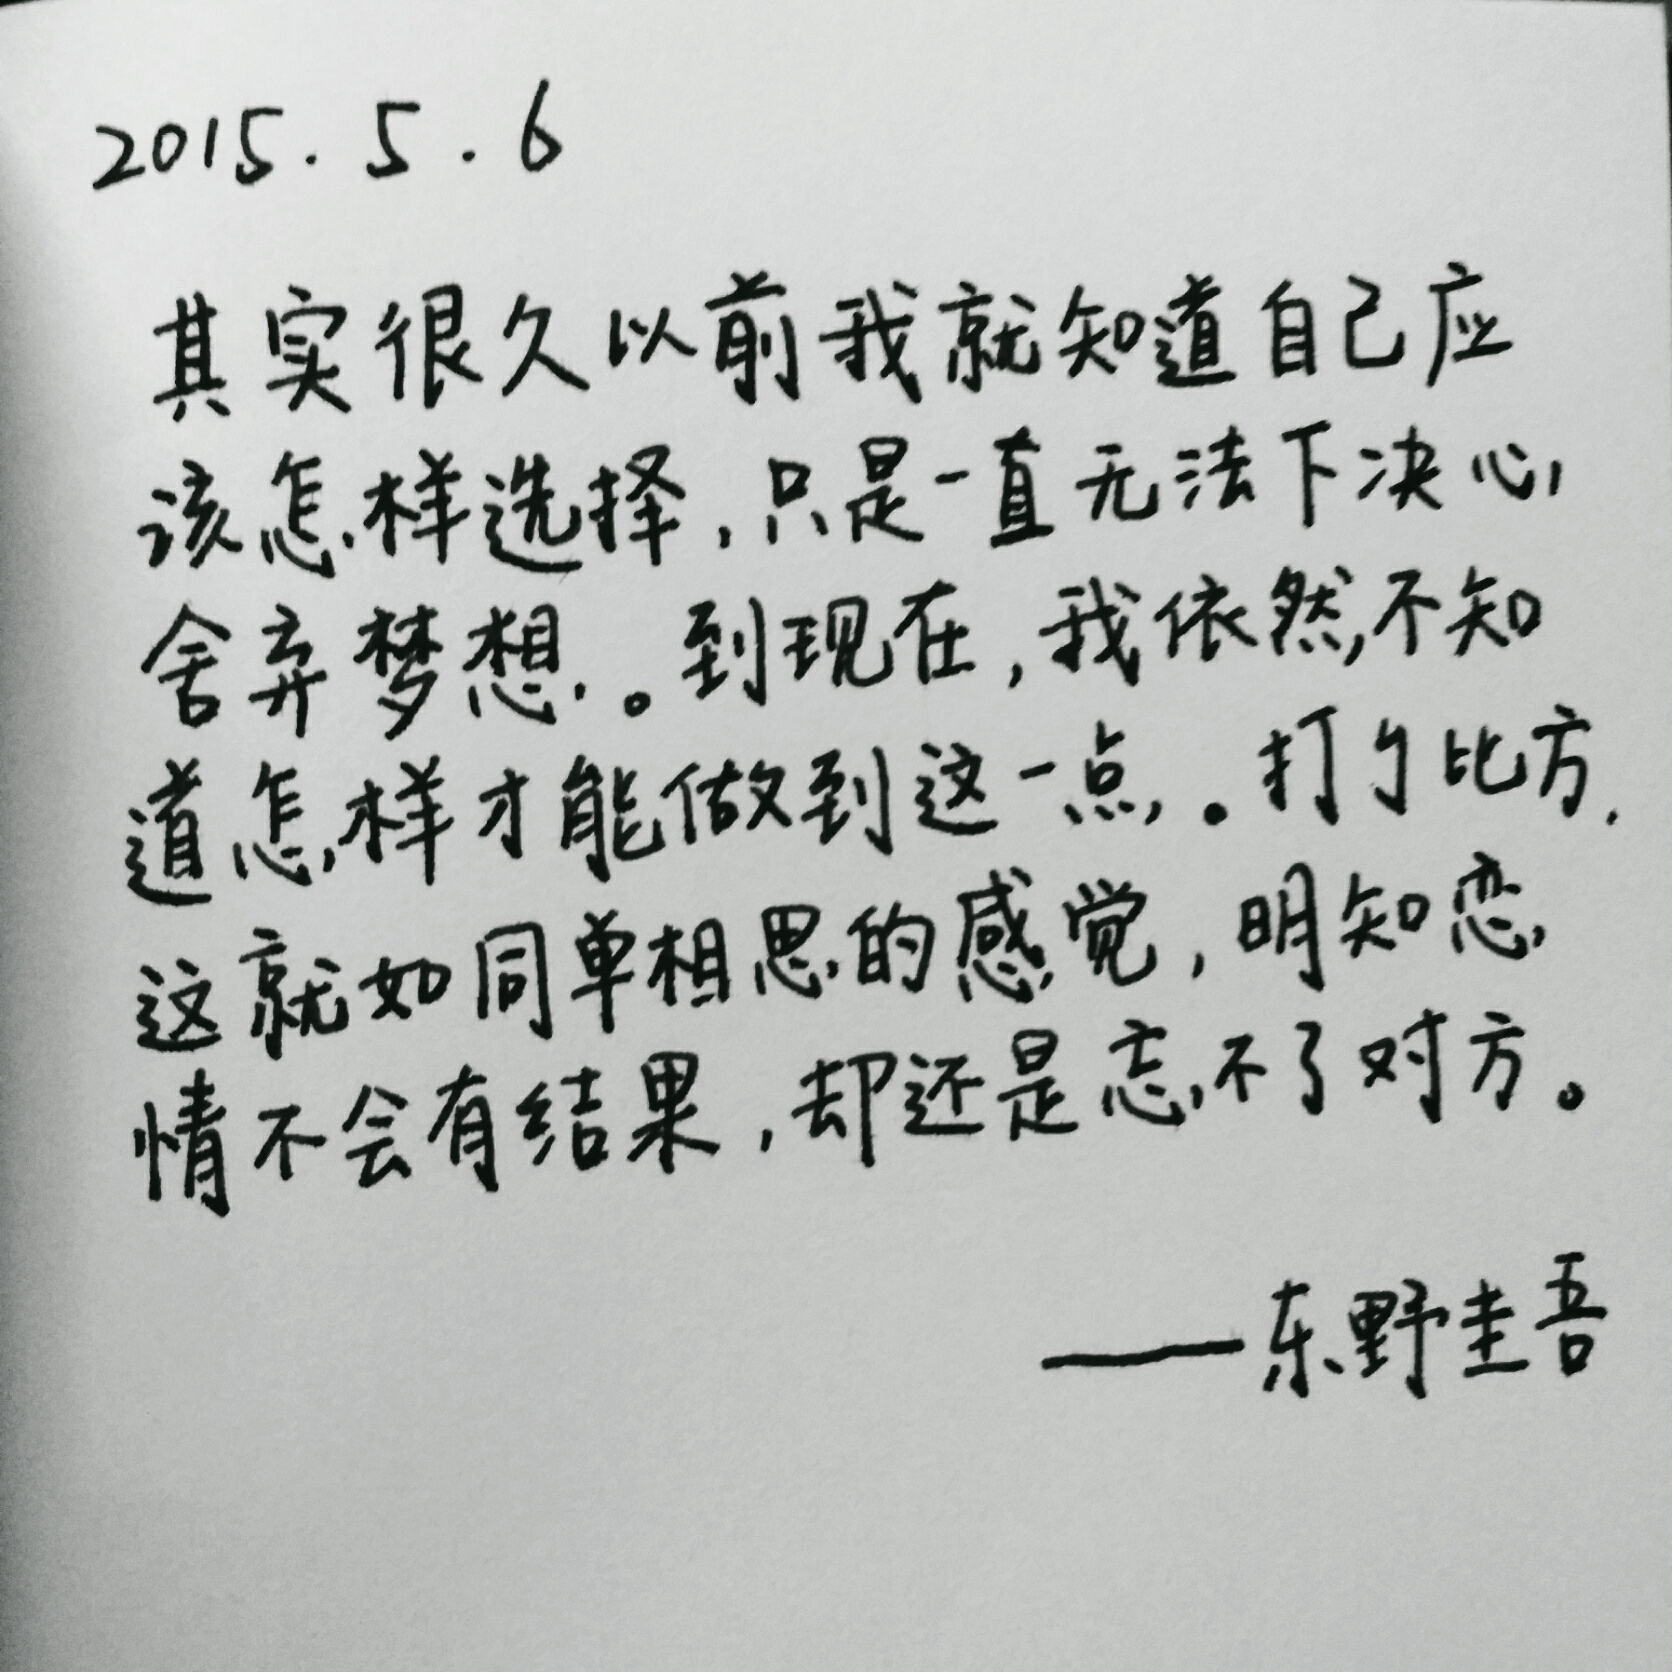 2015.5.6
其实很久以前我就知道自己应
该怎样选择,只是一直无法下决心
舍弃梦想。到现在,我依然不知
道怎样才能做到这一点。打个比方,
这就如同单相思的感觉,明知恋
情不会有结果,却还是忘不了对方。
——东野圭吾